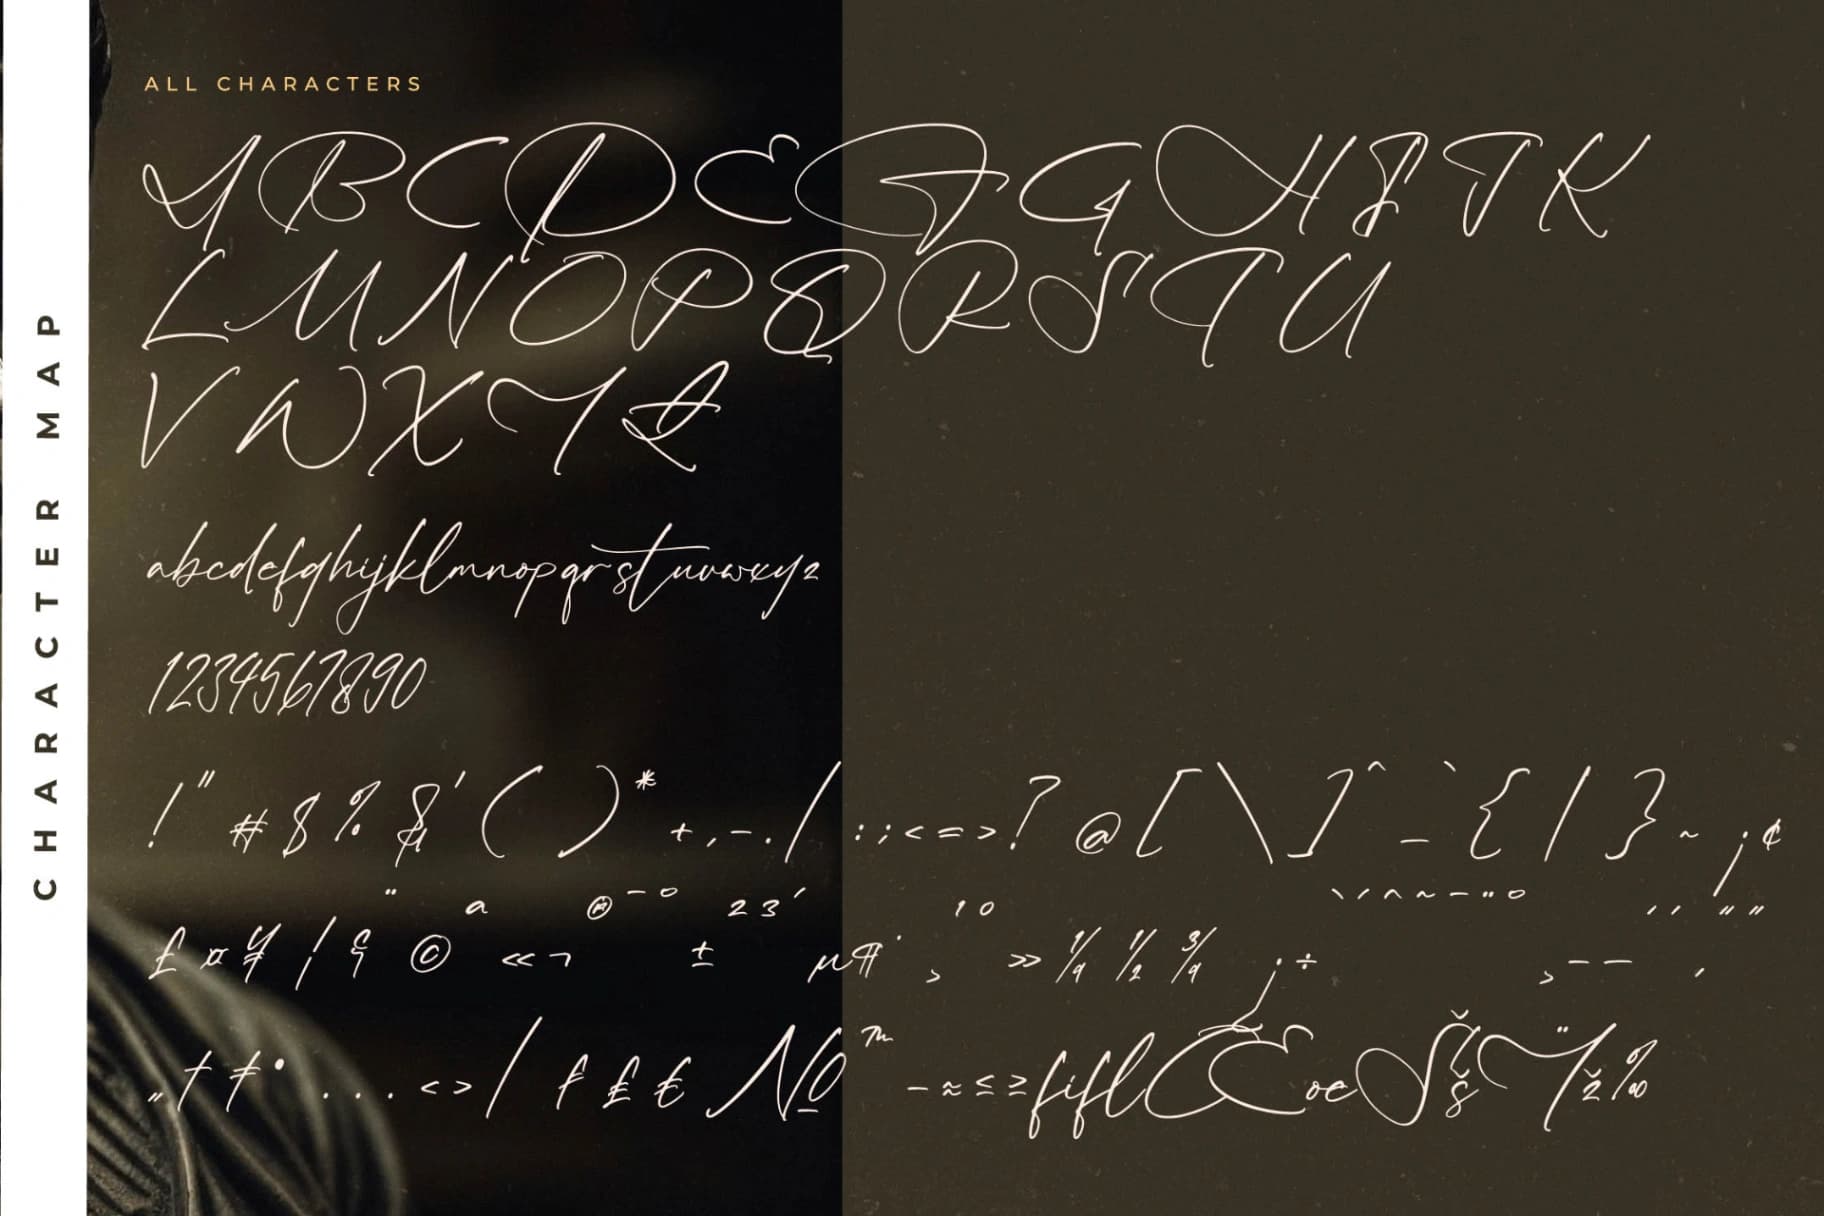 CHARACTER MAP
ALL CHARACTERS
ABCDEFGHIJK
LMNOPQRSTU
VWXYZ
abcdefghijklmnopqrstuvwxyz
1234567890
!"#$%&'()*+,-./:;<=>?@[\]^_`{|}~¡¢
£¤¥¦§¨©ª«¬®¯°±²³´µ¶·¸¹º»¼½¾¿÷
„†‡•...‹›⁄₣₤€№™−≈≤≥fiflŒœŠšŸž‰